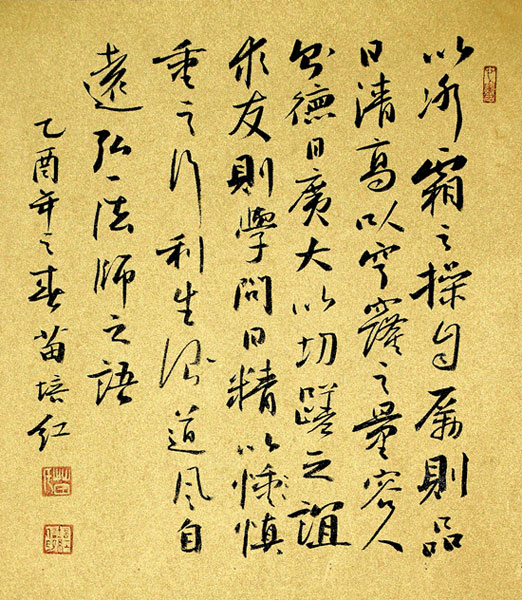 以冰霜之操自厲則品
日清高以穹窿之量容人
則德日廣大以切蹉之誼
取友則學問日精以慎
重之行利生則道風自
遠弘一法師之語
乙酉年之春苗培紅